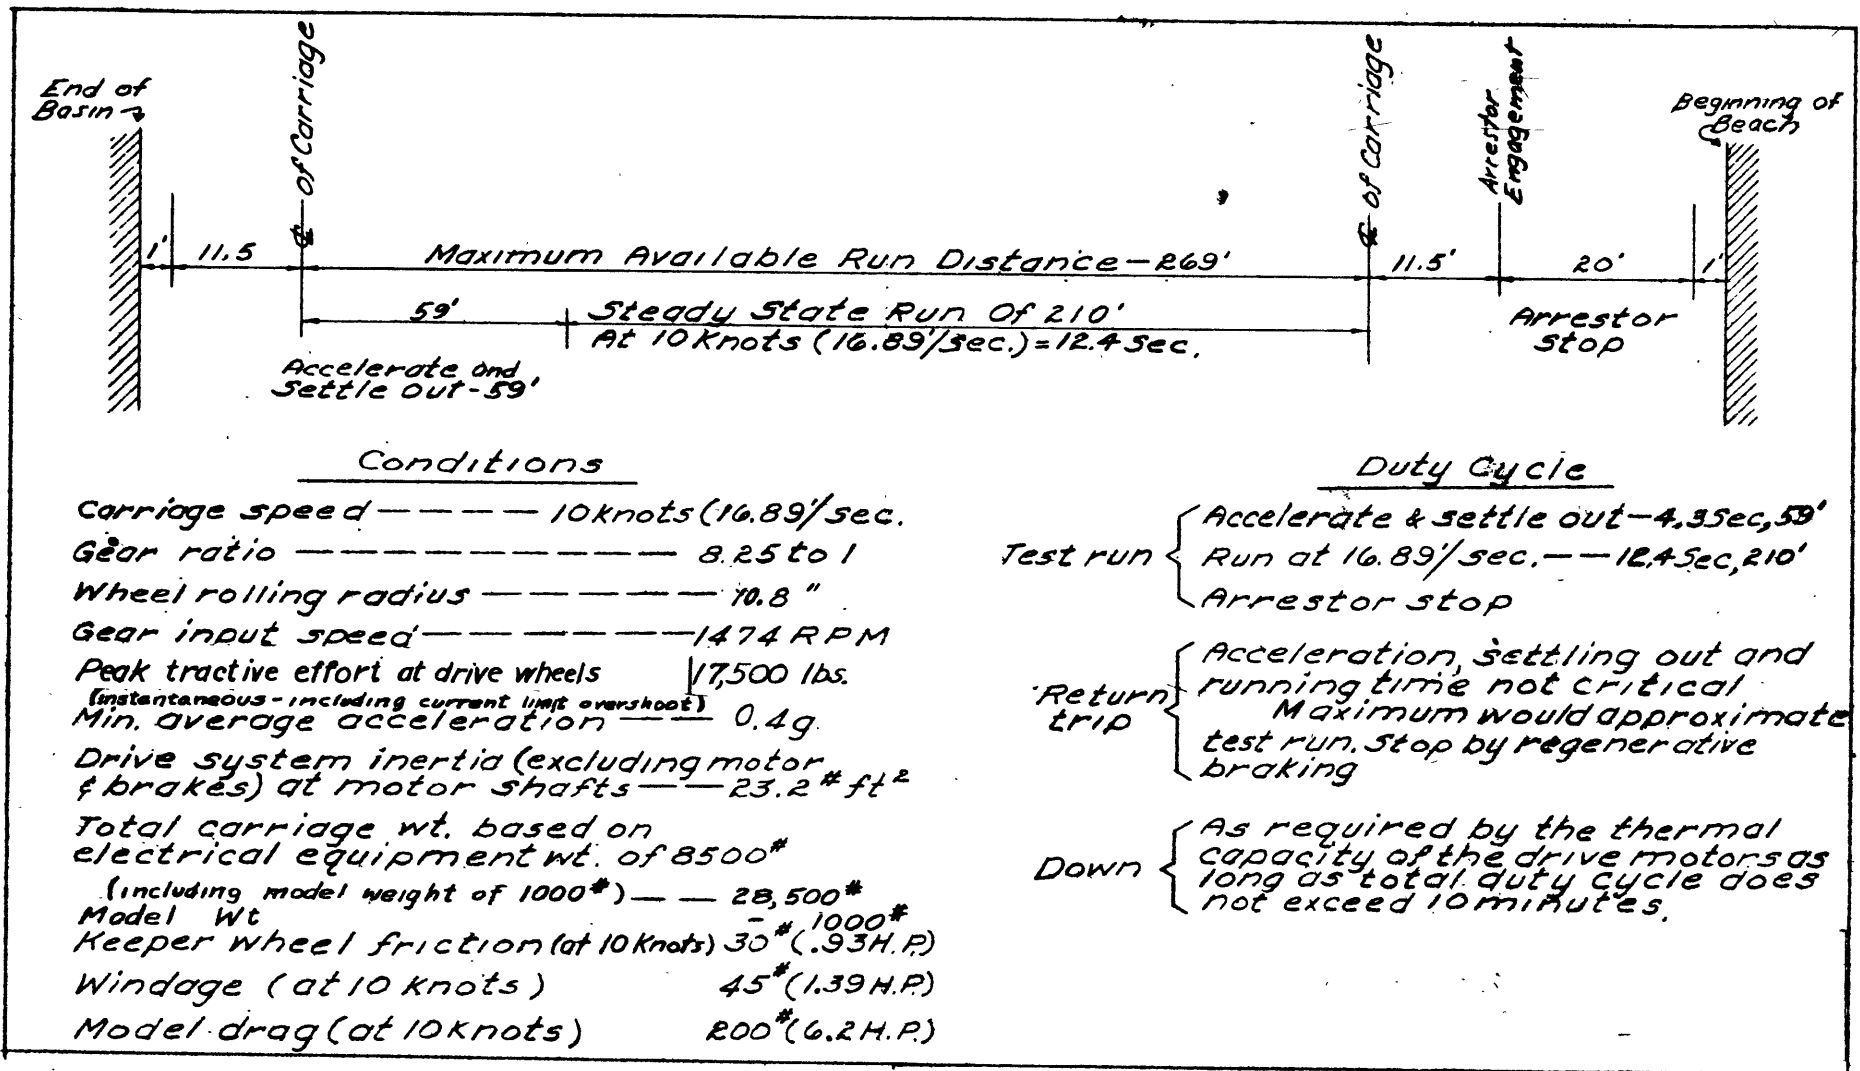 End of
Basin
℄ of Carriage
℄ of Carriage
Arrestor
Engagement
Beginning of
Beach
1'
11.5
Maximum Available Run Distance-269'
11.5'
20'
1'
59'
Steady State Run Of 210'
At 10 Knots (16.89'/sec.)=12.4 Sec.
Arrestor
Stop
Accelerate and
Settle Out-59'
Conditions
Carriage speed ———— 10 knots (16.89'/sec.
Gear ratio ————————— 8.25 to 1
Wheel rolling radius —————— 10.8 "
Gear input speed —————— 1474 RPM
Peak tractive effort at drive wheels 17,500 lbs.
(instantaneous - including current limit overshoot)
Min. average acceleration —— 0.4g.
Drive system inertia (excluding motor
& brakes) at motor shafts —— 23.2 # ft²
Total carriage wt. based on
electrical equipment wt. of 8500#
(including model weight of 1000#) — — 28,500#
Model Wt - 1000#
Keeper wheel friction (at 10 Knots) 30# (.93 H.P.)
Windage (at 10 Knots) 45# (1.39 H.P.)
Model drag (at 10 Knots) 200# (6.2 H.P.)
Duty Cycle
Test run
Accelerate & settle out-4.3 Sec, 59'
Run at 16.89'/sec. —— 12.4 Sec, 210'
Arrestor stop
Return
trip
Acceleration, settling out and
running time not critical
Maximum would approximate
test run. Stop by regenerative
braking
Down
As required by the thermal
capacity of the drive motors as
long as total duty cycle does
not exceed 10 minutes.